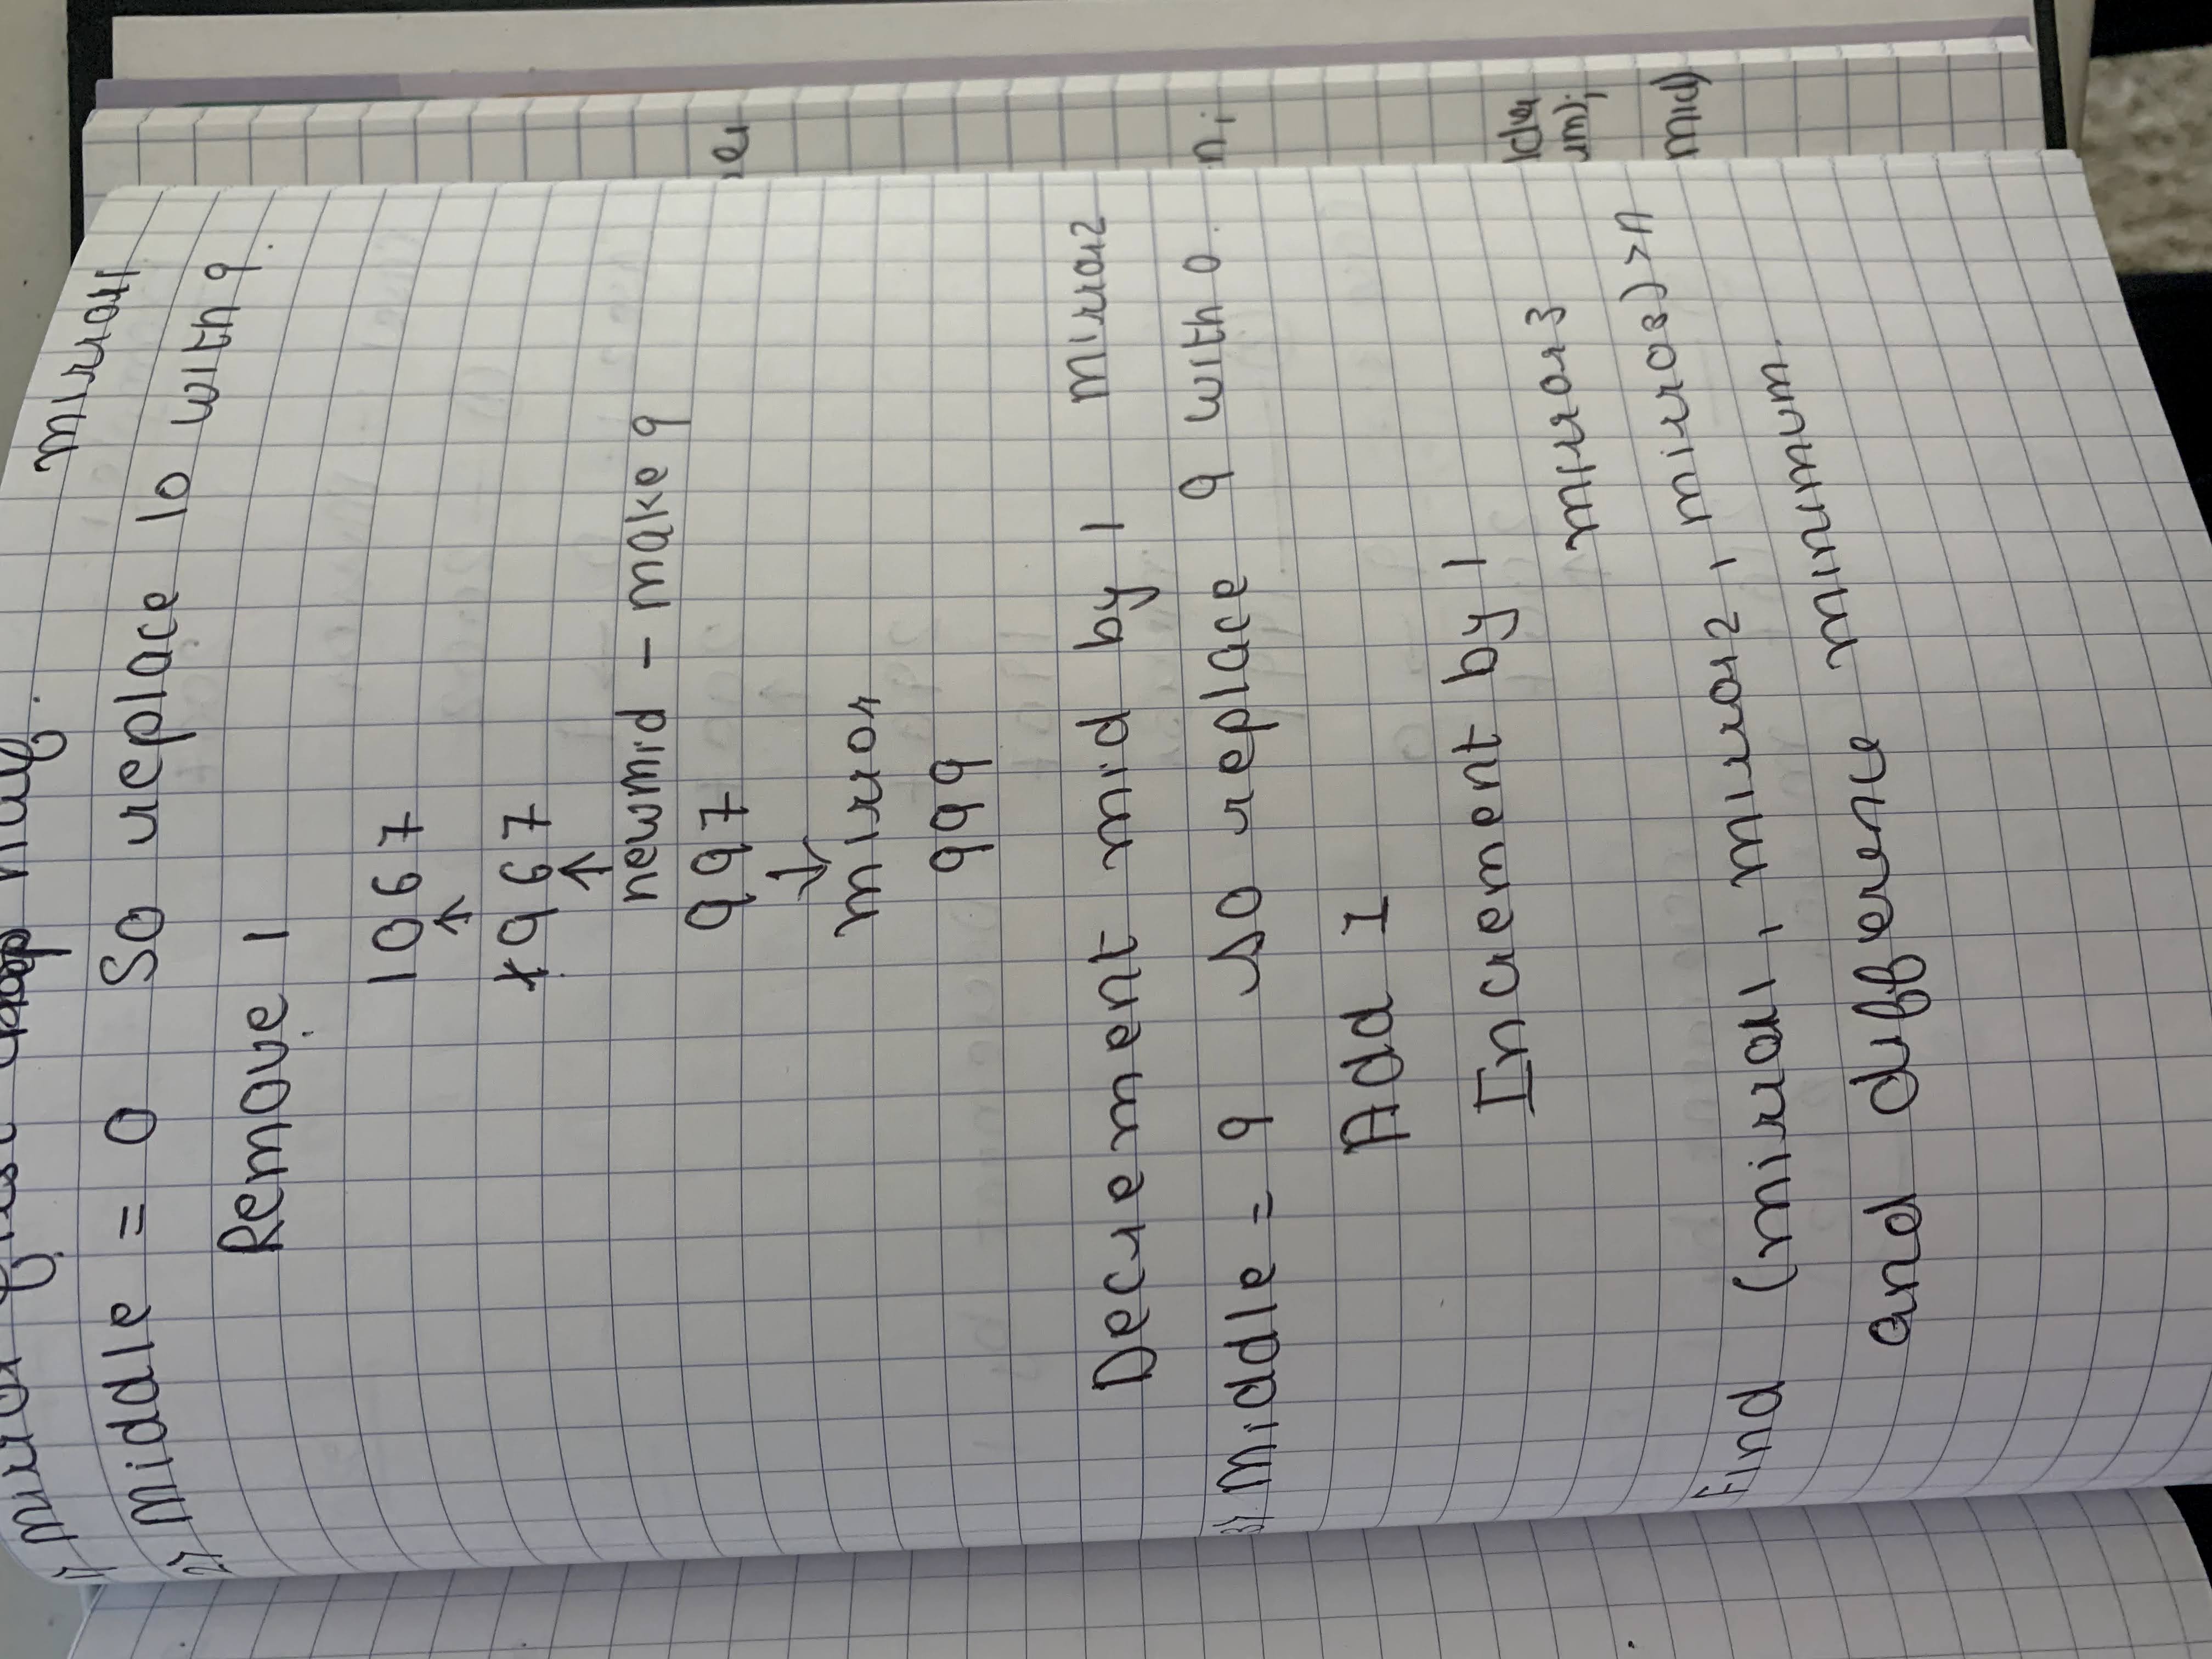 1) mirror first half.
mirror1
2) Middle = 0 So replace 10 with 9.
Remove 1
1067
↑
1967
↑
newmid - make 9
997
↓
mirror
999
Decrement mid by 1 mirror2
3) Middle = 9 so replace 9 with 0.
Add 1
Increment by 1
mirror3
Find (mirror1, mirror2, mirro3) > n
and difference minimum.
n;
um);
mid)